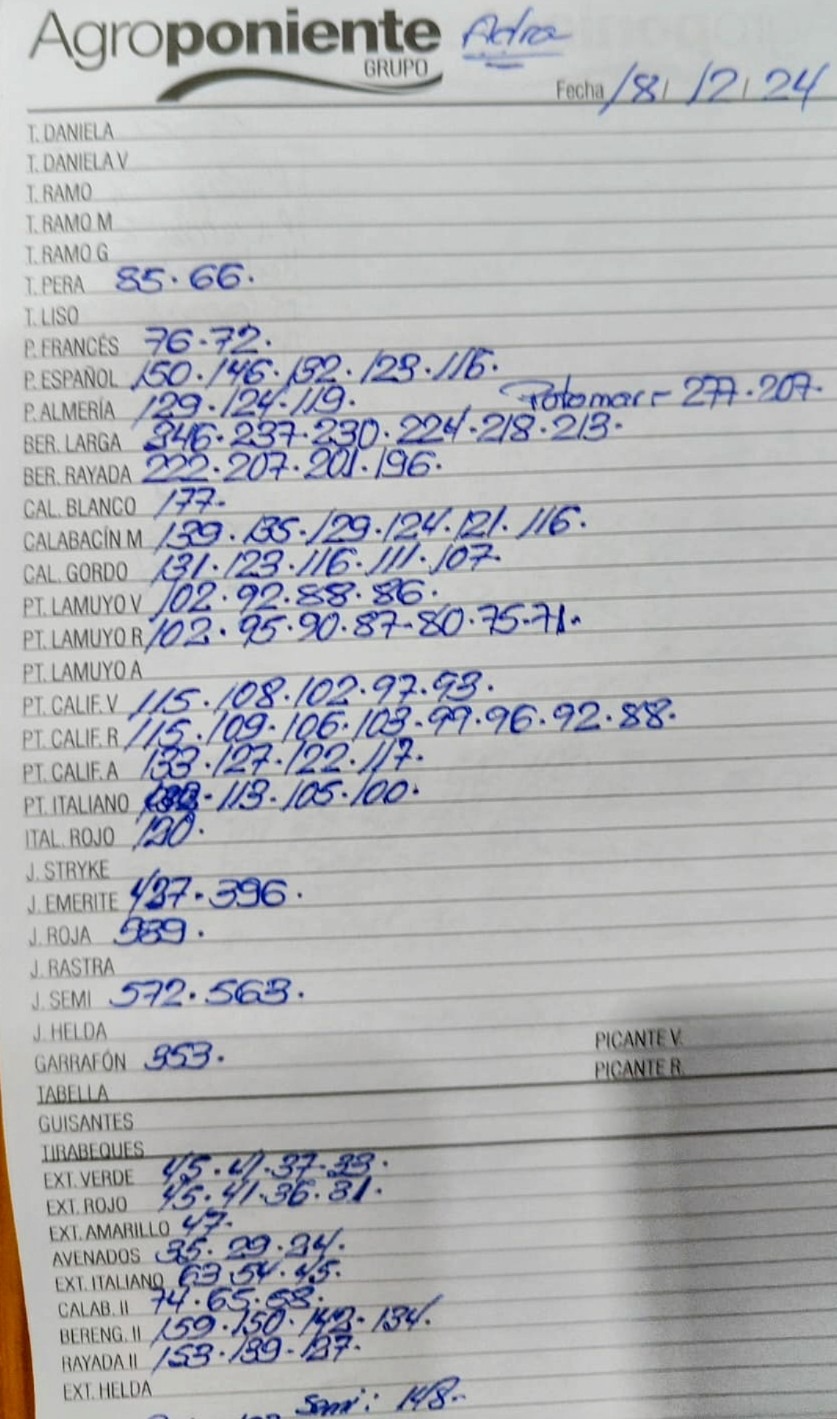 Agroponiente Adra
GRUPO
Fecha 18 / 12 / 24
T. DANIELA
T. DANIELA V
T. RAMO
T. RAMO M
T. RAMO G
T. PERA 85. 66.
T. LISO
P. FRANCÉS 76. 72.
P. ESPAÑOL 150. 146. 132. 123. 116.
P. ALMERÍA 129. 124. 119. Potomac = 277. 207.
BER. LARGA 246. 237. 230. 224. 218. 213.
BER. RAYADA 222. 207. 201. 196.
CAL. BLANCO 177.
CALABACÍN M 139. 135. 129. 124. 121. 116.
CAL. GORDO 131. 123. 116. 111. 107.
PT. LAMUYO V 102. 92. 88. 86.
PT. LAMUYO R 102. 95. 90. 87. 80. 75. 71.
PT. LAMUYO A
PT. CALIF. V 115. 108. 102. 97. 93.
PT. CALIF. R 115. 109. 106. 103. 99. 96. 92. 88.
PT. CALIF. A 133. 127. 122. 117.
PT. ITALIANO 113. 105. 100.
ITAL. ROJO 120.
J. STRYKE
J. EMERITE 427. 396.
J. ROJA 989.
J. RASTRA
J. SEMI 572. 563.
J. HELDA
PICANTE V.
GARRAFÓN 353.
PICANTE R.
TABELLA
GUISANTES
TIRABEQUES
EXT. VERDE 45. 41. 37. 33.
EXT. ROJO 45. 41. 36. 31.
EXT. AMARILLO 47.
AVENADOS 35. 29. 24.
EXT. ITALIANO 63. 54. 45.
CALAB. II 74. 65. 58.
BERENG. II 159. 150. 142. 134.
RAYADA II 153. 139. 127.
EXT. HELDA
Semi: 148.